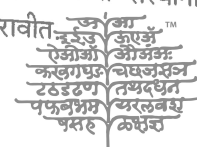 रावीत
अ आ
इ ई उ ऊ ए ऐ ™
ऐ ओ औ अं अः
क ख ग घ ङ च छ ज झ ञ
ट ठ ड ढ ण त थ द ध न
प फ ब भ म य र ल व श
ष स ह ळ क्ष ज्ञ